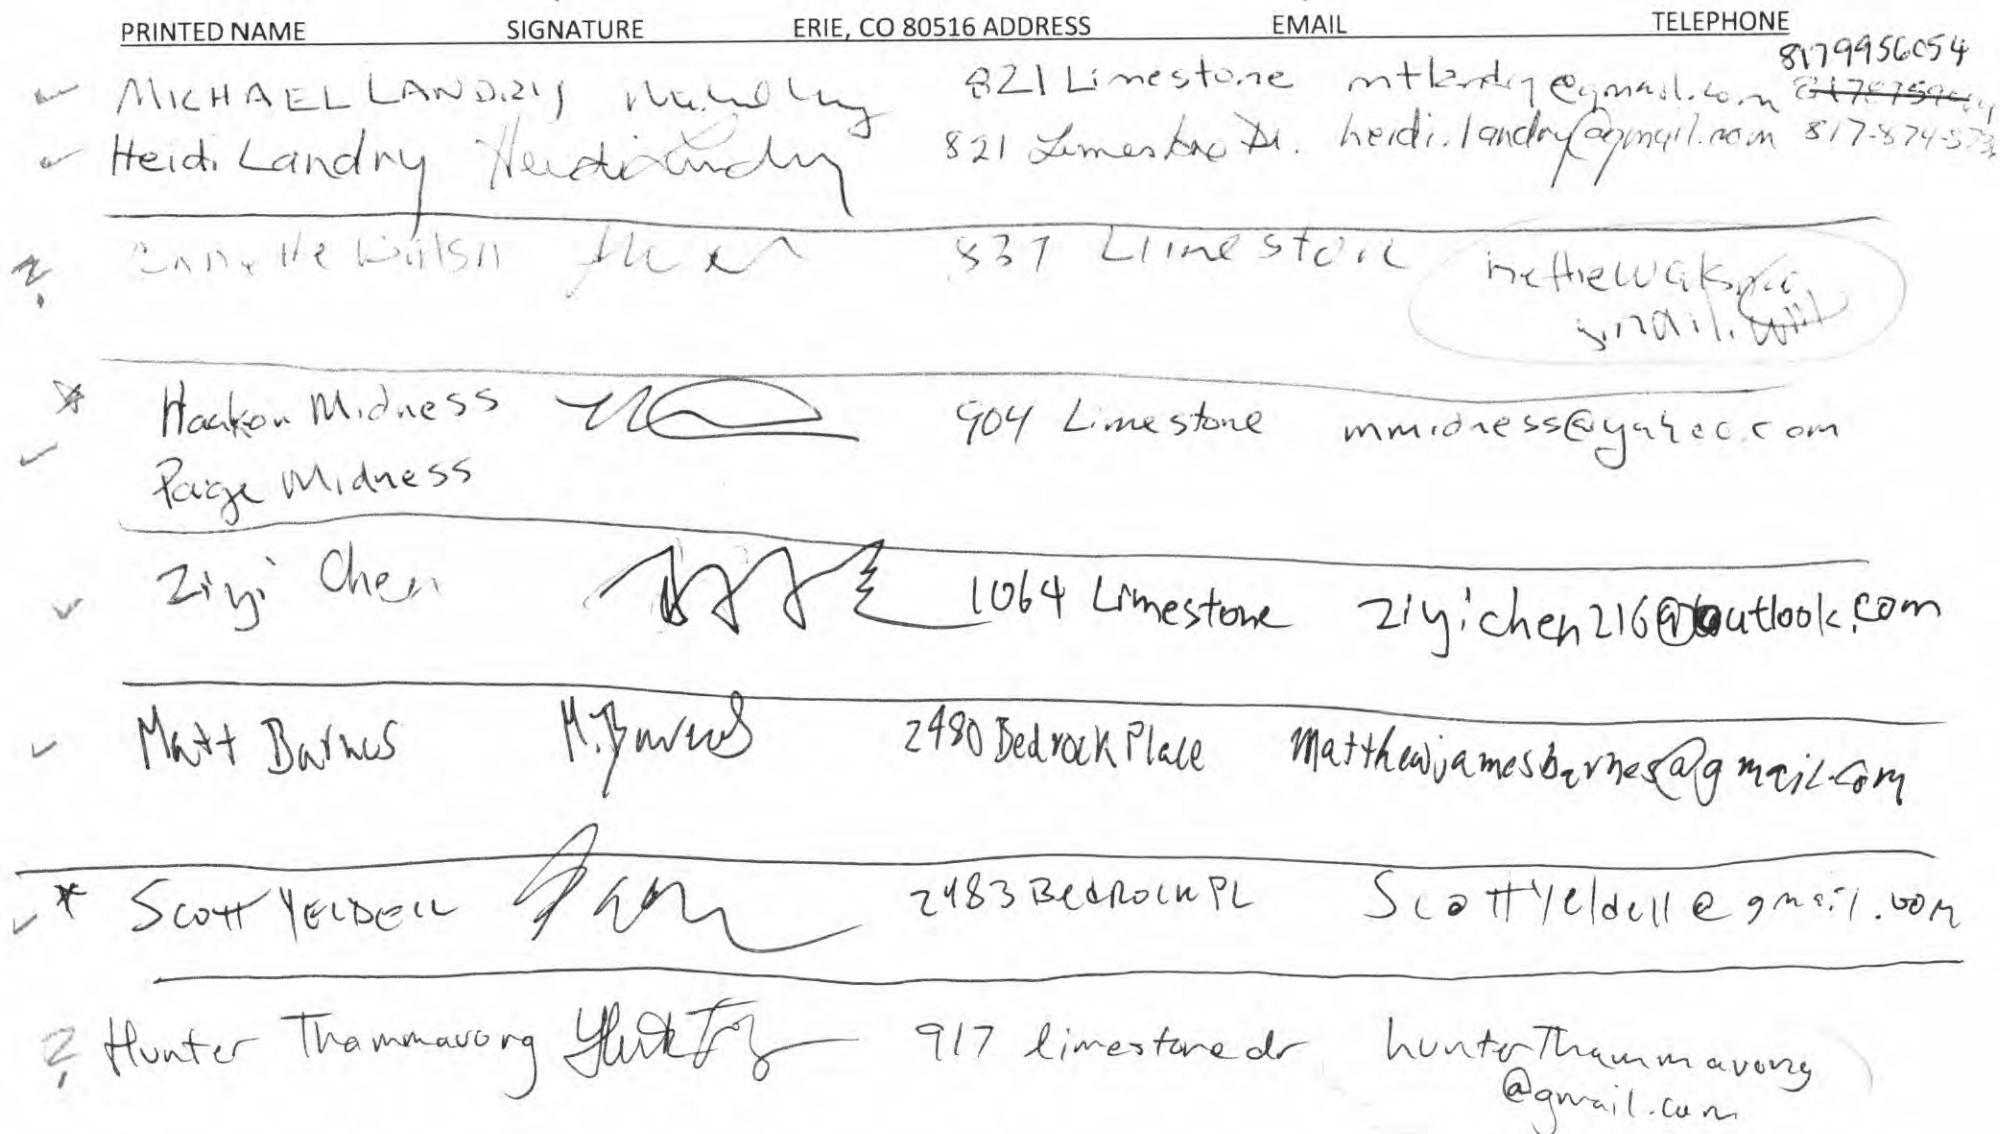 PRINTED NAME SIGNATURE ERIE, CO 80516 ADDRESS EMAIL TELEPHONE
8179956054
MICHAEL LANDRY 821 Limestone mtlandry@gmail.com
Heidi Landry Heidi Landry 821 Limestone Dr. heidi.landry@gmail.com 817-874-573
? Walsh 837 Limestone
gmail.
Haakon Midness 904 Limestone mmidness@yahoo.com
Paige Midness
Ziyi Chen 1064 Limestone ziyichen216@outlook.com
Matt Barnes M. Barnes 2480 Bedrock Place Matthewjamesbarnes@gmail.com
* SCOTT YELDELL 2483 Bedrock PL Scottyeldell@gmail.com
? Hunter Thammavong 917 limestone dr hunterThammavong
@gmail.com